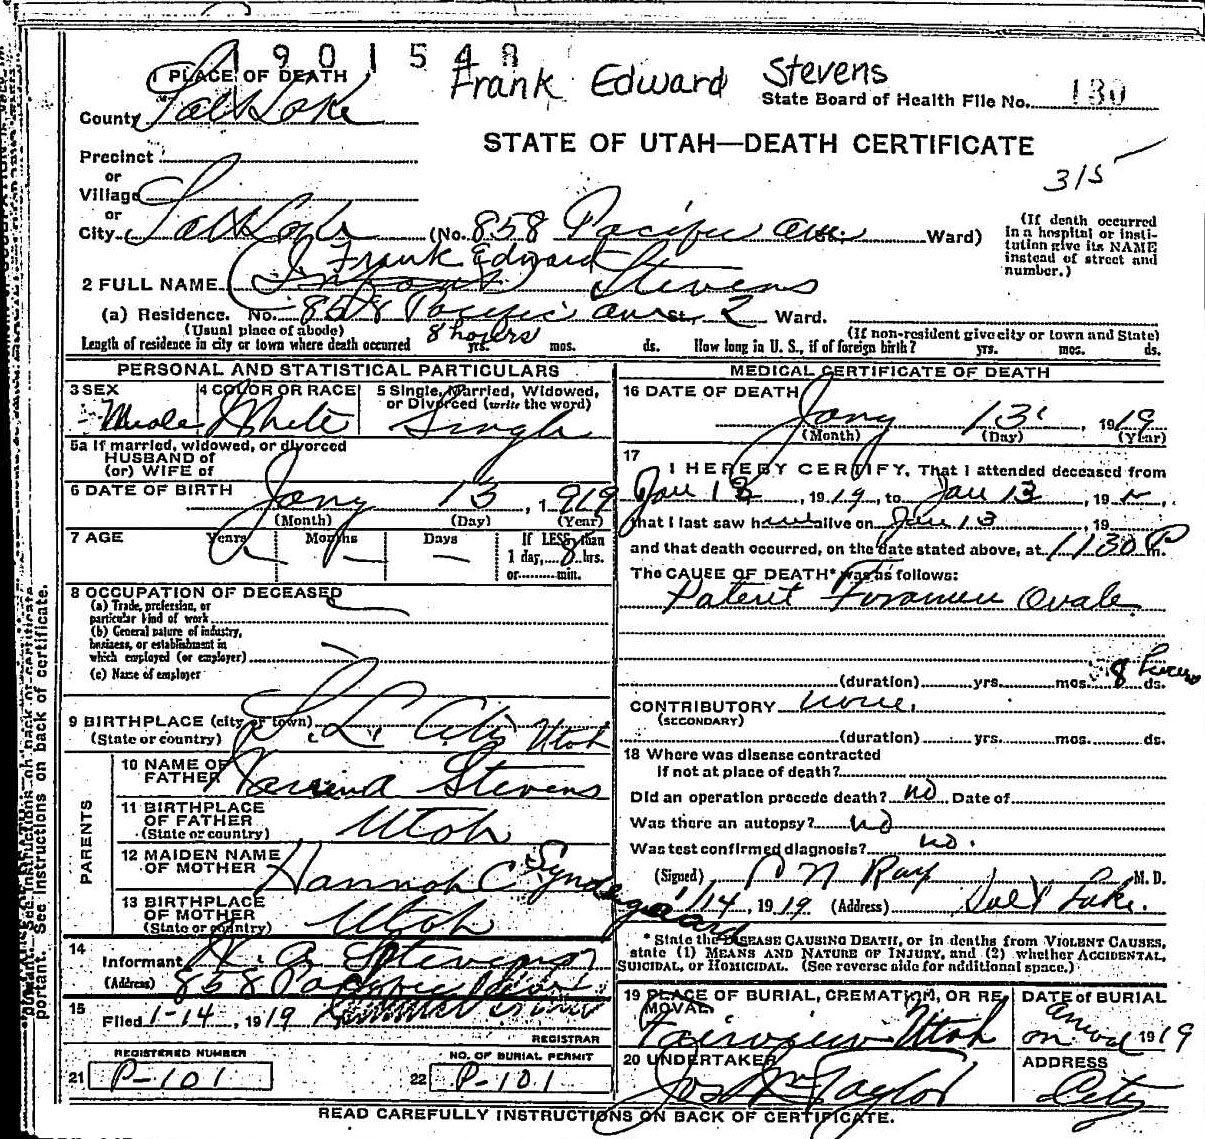 1901548
Frank Edward Stevens
1 PLACE OF DEATH
State Board of Health File No. 130
County Salt Lake
STATE OF UTAH—DEATH CERTIFICATE
Precinct
315
or
Village
or
City Salt Lake (No. 858 Pacific Ave St. Ward)
(If death occurred in a hospital or institution give its NAME instead of street and number.)
Frank Edward
2 FULL NAME (Infant) Stevens
(a) Residence. No. 858 Pacific Ave St. 2 Ward.
(Usual place of abode) (If non-resident give city or town and State)
Length of residence in city or town where death occurred 8 hours yrs. mos. ds. How long in U. S., if of foreign birth? yrs. mos. ds.
PERSONAL AND STATISTICAL PARTICULARS
3 SEX 4 COLOR OR RACE 5 Single, Married, Widowed, or Divorced (write the word)
Male White Single
5a If married, widowed, or divorced
HUSBAND of
(or) WIFE of
6 DATE OF BIRTH Jany 13, 1919
(Month) (Day) (Year)
7 AGE Years Months Days If LESS than
1 day, 8 hrs.
or min.
8 OCCUPATION OF DECEASED
(a) Trade, profession, or
particular kind of work
(b) General nature of industry,
business, or establishment in
which employed (or employer)
(c) Name of employer
9 BIRTHPLACE (city or town) S. L. City Utah
(State or country)
PARENTS
10 NAME OF FATHER Stevens
11 BIRTHPLACE OF FATHER Utah
(State or country)
12 MAIDEN NAME OF MOTHER Hannah C Syndergaard
13 BIRTHPLACE OF MOTHER Utah
(State or country)
14
Informant A Stevens
(Address) 858 Pacific
15
Filed 1-14, 1919
REGISTRAR
REGISTERED NUMBER NO. OF BURIAL PERMIT
21 P-101 22 P-101
MEDICAL CERTIFICATE OF DEATH
16 DATE OF DEATH Jany 13, 1919
(Month) (Day) (Year)
17
I HEREBY CERTIFY, That I attended deceased from
Jan 13, 1919, to Jan 13, 19
that I last saw h alive on Jan 13, 19
and that death occurred, on the date stated above, at 1130 P m.
The CAUSE OF DEATH* was as follows:
Patent Foramen Ovale
(duration) yrs. mos. 8 hours ds.
CONTRIBUTORY none.
(SECONDARY)
(duration) yrs. mos. ds.
18 Where was disease contracted
if not at place of death?
Did an operation precede death? no Date of
Was there an autopsy? no
Was test confirmed diagnosis? no.
(Signed) P N Ray M. D.
1/14, 1919 (Address) Salt Lake.
* State the DISEASE CAUSING DEATH, or in deaths from VIOLENT CAUSES,
state (1) MEANS AND NATURE OF INJURY, and (2) whether ACCIDENTAL,
SUICIDAL, or HOMICIDAL. (See reverse side for additional space.)
19 PLACE OF BURIAL, CREMATION, OR REMOVAL DATE of BURIAL
Fairview Utah 1919
20 UNDERTAKER ADDRESS
Jos Wm Taylor City
READ CAREFULLY INSTRUCTIONS ON BACK OF CERTIFICATE.
portant. See instructions on back of certificate.